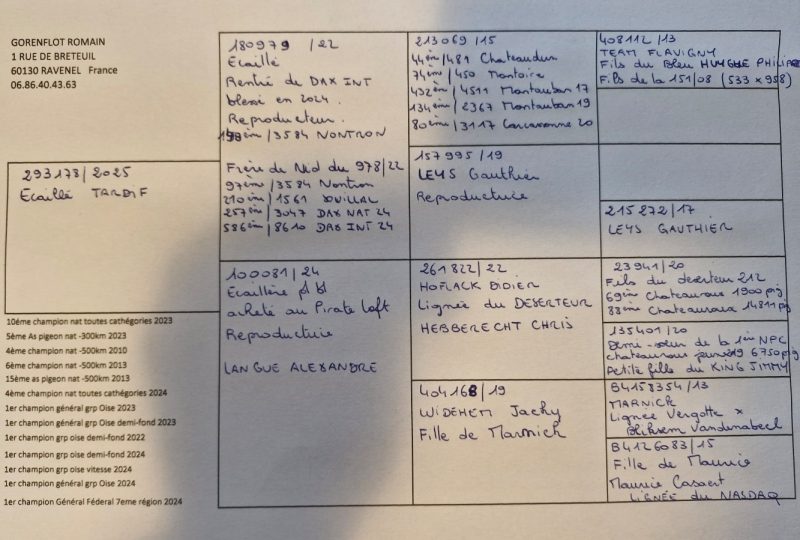 GORENFLOT ROMAIN
1 RUE DE BRETEUIL
60130 RAVENEL France
06.86.40.43.63
293178/2025
Ecaillé TARDIF
10éme champion nat toutes cathégories 2023
5ème As pigeon nat -300km 2023
4ème champion nat -500km 2010
6ème champion nat -500km 2013
15ème as pigeon nat -500km 2013
4ème champion nat toutes cathégories 2024
1er champion général grp Oise 2023
1er champion grp Oise demi-fond 2023
1er champion grp oise demi-fond 2022
1er champion grp oise demi-fond 2024
1er champion grp oise vitesse 2024
1er champion général grp Oise 2024
1er champion Général Féderal 7eme région 2024
180979 /22
Ecaillé
Rentré de DAX INT
blessé en 2024.
Reproducteur.
/3584 NONTRON
Frère de Nid du 978/22
97ème/3584 Nontron
210ème/1561 SOUILLAC
257ème/3047 DAX NAT 24
586ème/8610 DAX INT 24
100081/24
Ecaillère pl bl
acheté au Pirate Loft
Reproductrice
LANGUE ALEXANDRE
213069/15
44ème/481 Chateaudun
74ème/450 Montoire
432ème/4511 Montauban 17
134ème/2367 Montauban 19
80ème/3117 Carcassonne 20
157995/19
LEYS Gauthier
Reproductrice
261822/22
HOFLACK DIDIER
Lignée du DESERTEUR
HEBBERECHT CHRIS
404168/19
WIDEHEM Jacky
Fille de Marnick
408112/13
TEAM FLAVIGNY
Fils du Bleu HUYGHE PHILIPPE
Fils de la 151/08 (533 x 958)
215272/17
LEYS GAUTHIER
23941/20
Fils du deserteur 212
69ème Chateauroux 1900 pig
88ème Chateauroux 14811 pig
135401/20
Demi-soeur de la 1ère NPC
chateauroux 6750 pig
Petite fille du KING JIMMY
B4158354/13
MARNICK
Lignée Vergotte x
Bliksem Vandenabeel
B4126083/15
Fille de Maurice
Maurice Casaert
LIGNÉE du NASDAQ